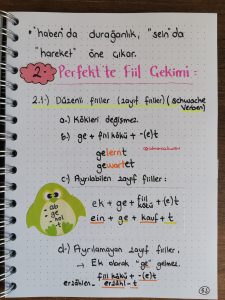 "haben"da durağanlık, "sein"da
"hareket" öne çıkar.
2. Perfekt'te Fiil Çekimi:
2.1) Düzenli fiiller (zayıf fiiller) (schwache Verben)
a.) Kökleri değişmez.
b.) ge + fiil kökü + -(e)t
gelernt
gewartet
c.) Ayrılabilen zayıf fiiller:
ek + ge + fiil kökü + -(e)t
ein + ge + kauf + t
ab
ge
hol
-t
d-) Ayrılamayan zayıf fiiller;
→ Ek olarak "ge" gelmez.
fiil kökü + -(e)t
erzählen → erzähl - t